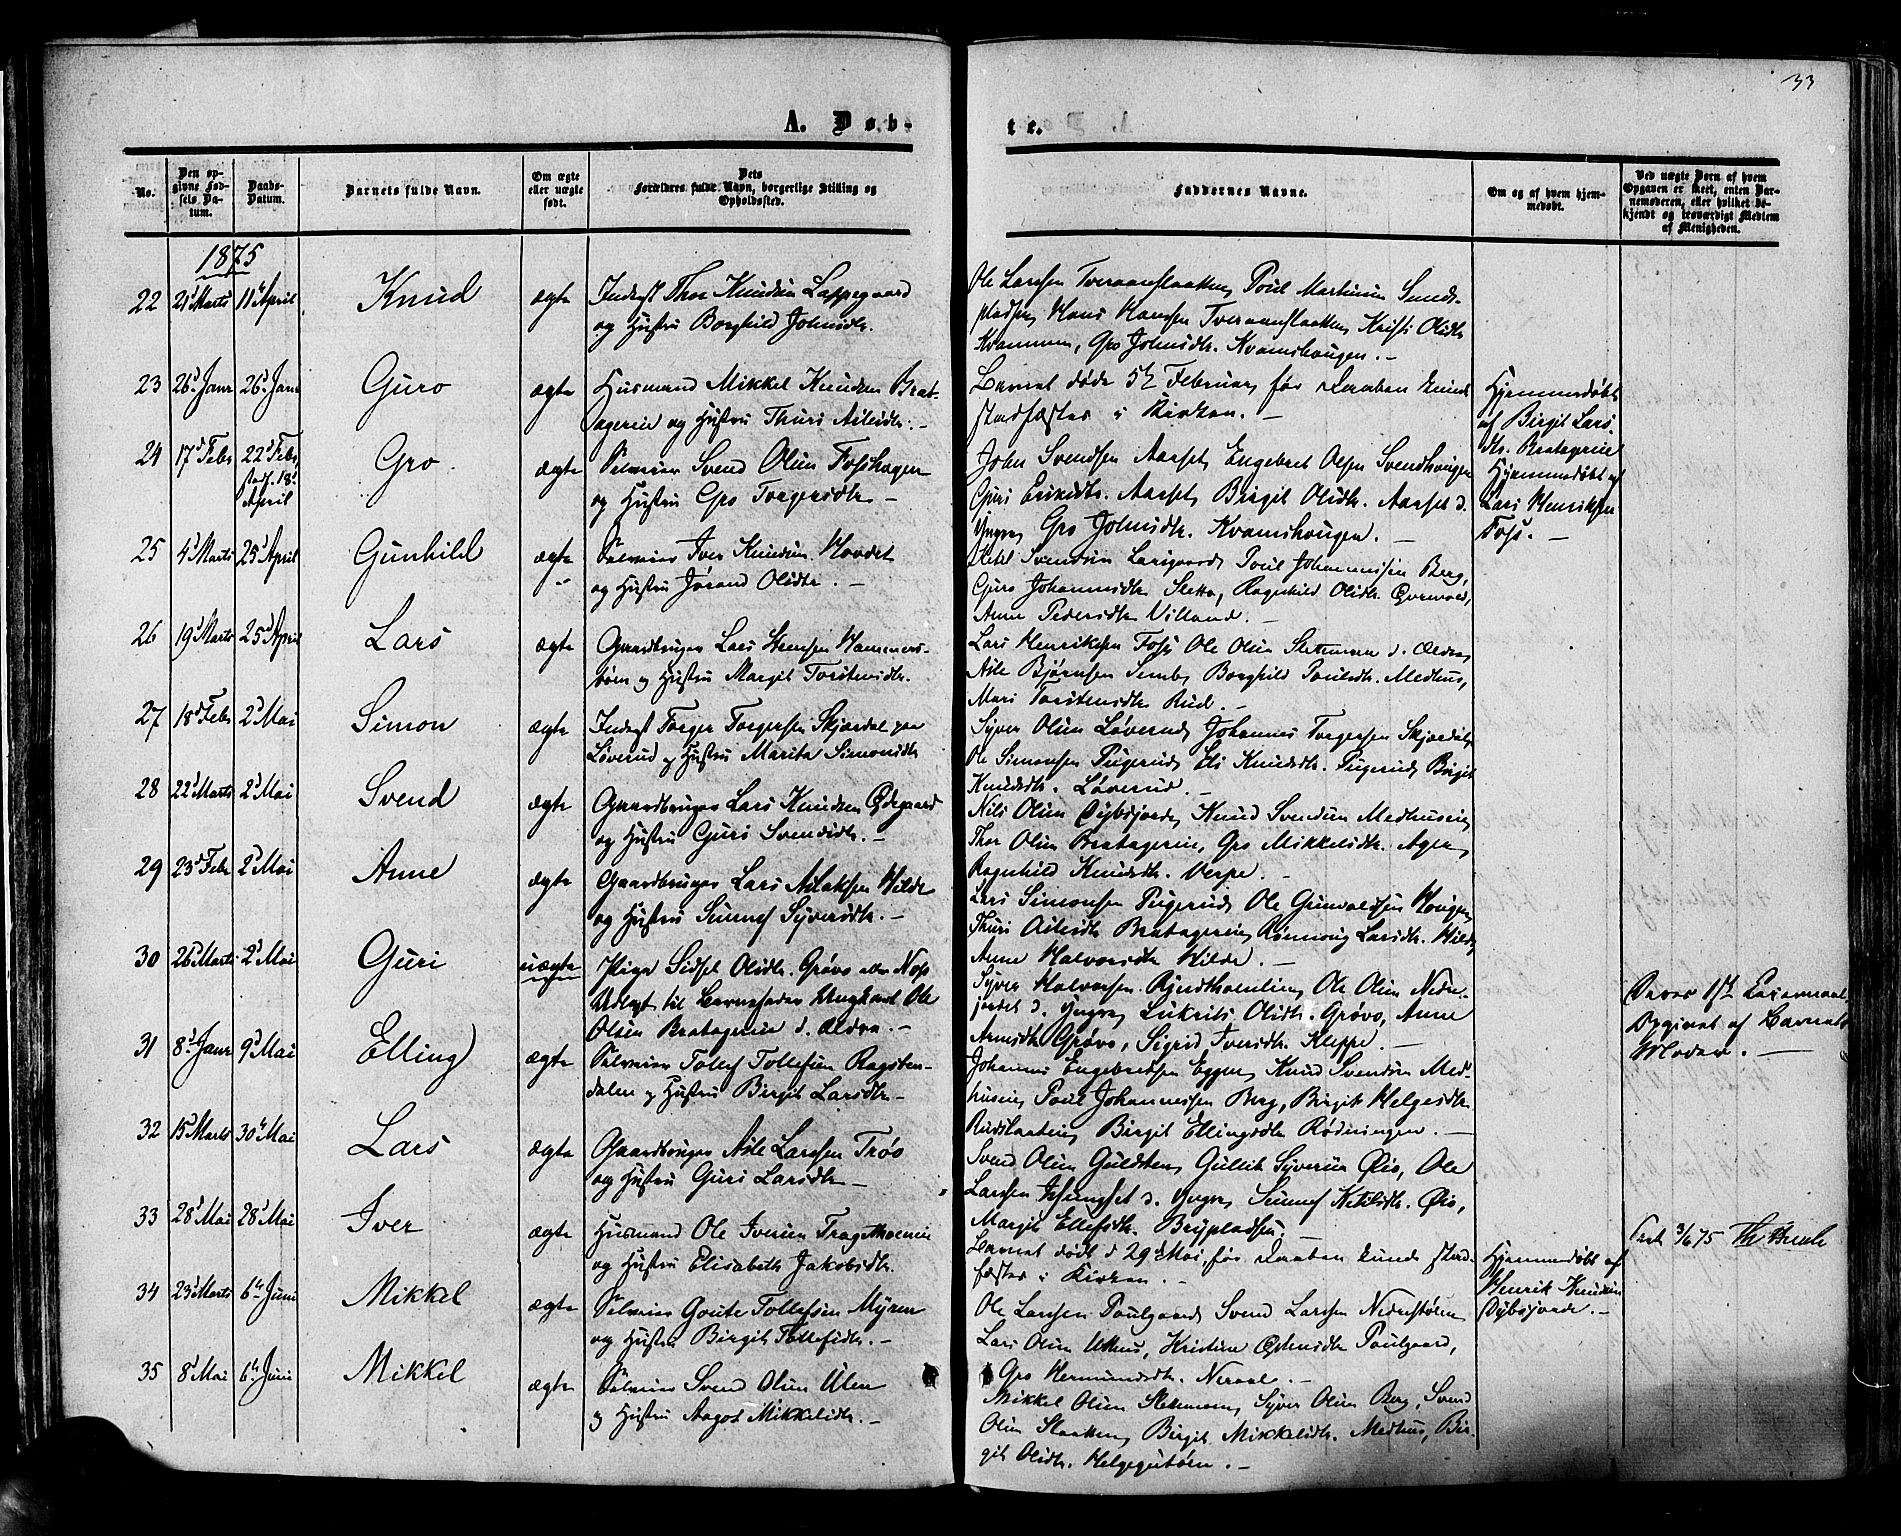 33
A. Døb-
te.
No.
Den op-
givne Fød-
sels Da-
tum.
Daabs-
Datum.
Barnets fulde Navn.
Om ægte
eller uægte
født.
Dets
Forældres fulde Navn, borgerlige Stilling og
Opholdssted.
Faddernes Navne.
Om og af hvem hjem-
medøbt.
Ved uægte Børn af hvem
Opgaven er skeet, enten Bar-
nemoderen, eller hvilket be-
kjendt og troværdigt Medlem
af Menigheden.
1875
22 21 Marts 11 April Knud ægte Inderst Thor Knudsen Lappegaard
og Hustru Borghild Johnsdtr.
Ole Larssen Tveraanslaatten, Poul Martinsen Sunds-
pladsen, Hans Hansen Tveraanslaatten, Kristi Olsdtr.
Kvammen, Gro Johnsdtr. Kvamshougen. –
23 26 Janr 26 Janr Guro ægte Husmand Mikkel Knudsen Brat-
ageren og Hustru Thuri Asledtr. –
Barnet døde 5te Februar før Daaben kunde
stadfæstes i Kirken. –
Hjemmedøbt
af Birgit Lars-
dtr. Bratageren
24 17 Febr 22 Febr,
stadf. 18
April
Gro ægte Selveier Svend Olsen Foshagen
og Hustru Gro Torgersdtr. –
John Svendsen Aaset, Engebret Olsen Svendhougen
Guri Eriksdtr. Aaset, Birgit Olsdtr. Aaset d.
Yngre, Gro Johnsdtr. Kvamshougen. –
Hjemmedøbt af
Lars Henriksen
Foss. –
25 4 Marts 25 April Gunhild ægte Selveier Iver Knudsen Hovdet
og Hustru Jørand Olsdtr. –
Ketil Svendsen Larsgaard, Poul Johannessen Berg,
Guro Johannesdtr. Sletto, Ragnhild Olsdtr.
Anne Pedersdtr. Villand. –
26 19 Marts 25 April Lars ægte Gaardbruger Lars Hansen Hammers-
bøen og Hustru Margit Torstensdtr.
Lars Henriksen Foss, Ole Olsen Slettemoen d. Ældre,
Asle Bjørnsen Semb, Borghild Poulsdtr. Medhus,
Mari Torstensdtr. Rud. –
27 18 Febr 2 Mai Simon ægte Inderst Torger Torgersen Skjerdal paa
Løverud og Hustru Marita Simonsdtr.
Syver Olsen Løverud, Johannes Torgersen Skjærdal,
Ole Simonsen Tugerud, Eli Knudsdtr. Tugerud, Birgit
Knudsdtr. Løverud. –
28 22 Marts 2 Mai Svend ægte Gaardbruger Lars Knudsen Ødegaard
og Hustru Guri Svendsdtr. –
Nils Olsen Dybsjord, Knud Svendsen Medhuseie,
Thor Olsen Brataageren, Gro Mikkelsdtr. Ager,
Ragnhild Knudsdtr. Verpe. –
29 23 Febr 2 Mai Anne ægte Gaardbruger Lars Aslaksen Hilde
og Hustru Sunnef Syversdtr. –
Lars Simonsen Tugerud, Ole Gunvaldsen Hougen,
Thuri Aslesdtr. Bratageren, Rønnoug Larsdtr. Hilde,
Anne Halvorsdtr. Hilde. –
30 26 Marts 2 Mai Guri uægte Pige Sidsel Olsdtr. Grøvo eller Noss
Udlagt til Barnefader Ungkarl Ole
Olsen Bratageren d. Ældre. –
Syver Halvorsen Ole Olsen Nedre-
jordet d. Yngre, Lukrits Olsdtr. Grøvo, Anne
Arnesdtr. Grøvo, Sigrid Iversdtr. Kleppe. –
Faders 1ste Leiermaal.
Opgivet af Barnets
Moder. –
31 8 Janr 9 Mai Elling ægte Selveier Tolef Tollefsen Ragsten-
dalen og Hustru Birgit Larsdtr. –
Johannes Engebretsen Eggen, Knud Svendsen Med-
huseie, Poul Johannessen Berg, Birgit Helgesdtr.
Rudslaatten, Birgit Ellingsdtr. Rødningen. –
32 15 Marts 30 Mai Lars ægte Gaardbruger Asle Larssen Trøo
og Hustru Guri Larsdtr. –
Svend Olsen Guldsten, Gullik Syversen Øio, Ole
Larssen d. Yngre, Sunnef Ketilsdtr. Øio,
Margit Ellefsdtr.
33 28 Mai 28 Mai Iver ægte Husmand Ole Iversen Tragethoneie
og Hustru Elisabeth Jakobsdtr.
Barnet dødt d 29 Mai, før Daaben kunde stad-
fæstes i Kirken. –
Hjemmedøbt af
Henrik Knudsen
Dybsjord. –
3/6 75
34 23 Marts 6 Juni Mikkel ægte Selveier Goute Tollefsen Myren
og Hustru Birgit Tollefsdtr. –
Ole Larssen Poulgaard, Svend Larssen Nedrestølen
Lars Olsen Uthus, Kristine Østensdtr. Poulgaard,
Gro Hermundsdtr. Neraal. –
35 8 Mai 6 Juni Mikkel ægte Selveier Svend Olsen Ulen
og Hustru Aagot Mikkelsdtr. –
Mikkel Olsen Slettemoen, Syver Olsen Berg, Svend
Olsen Slaatten, Birgit Mikkelsdtr. Medhus, Bir-
git Olsdtr. Helgegutøen. –